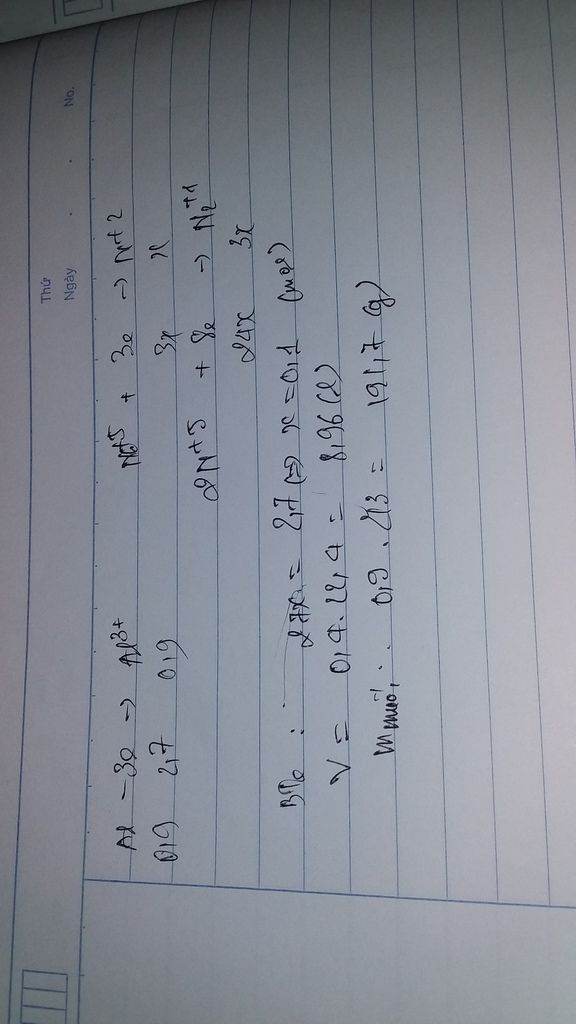 Thứ
Ngày . . No.
Al - 3e → Al³⁺ N⁺⁵ + 3e → N⁺²
0,9 2,7 0,9 3x x
2N⁺⁵ + 8e → N₂⁺¹
24x 3x
BTe : 27x = 2,7 (=) x = 0,1 (mol)
V = 0,4 . 22,4 = 8,96 (l)
m muối : 0,9 . 213 = 191,7 (g)